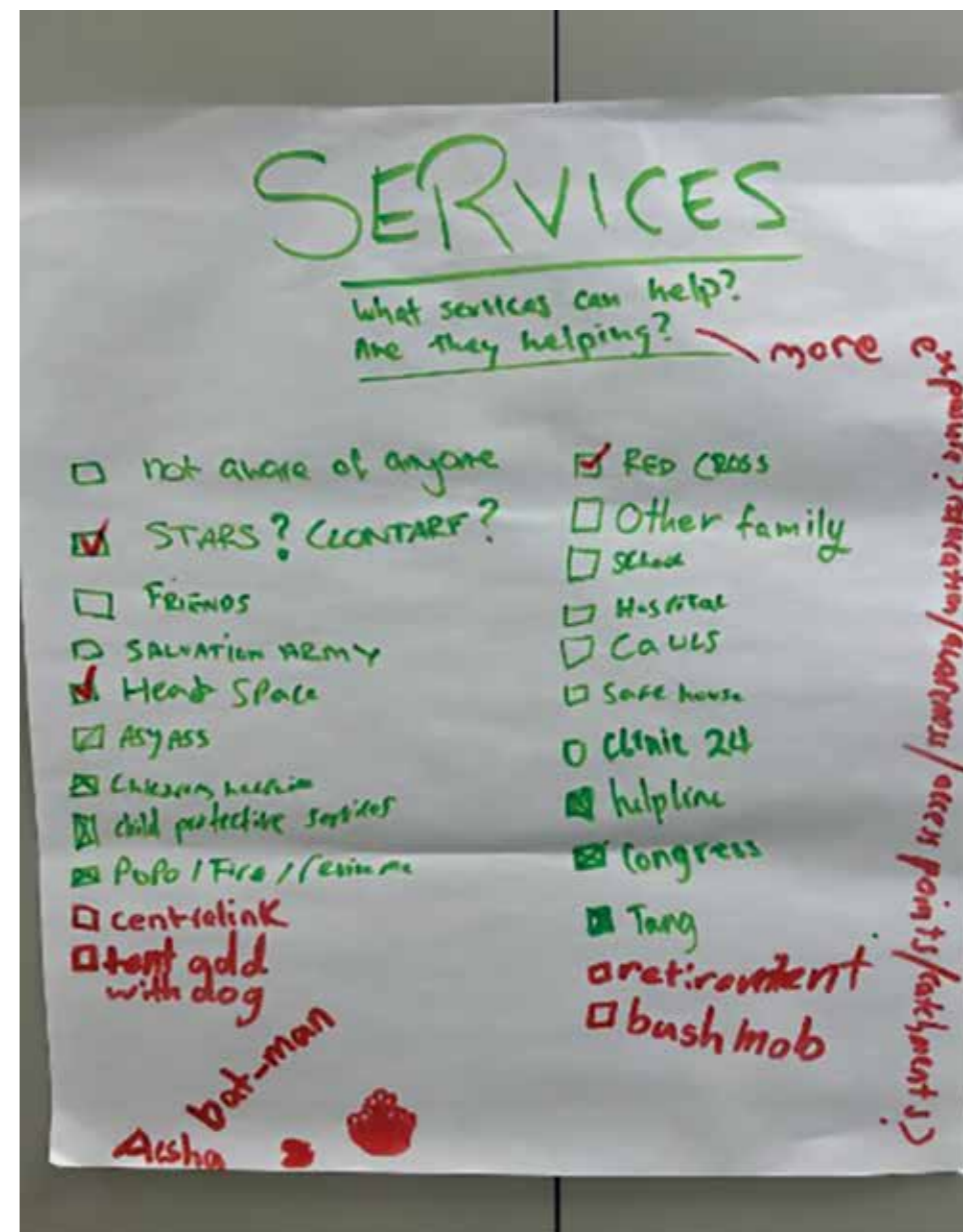 SERVICES
What services can help?
Are they helping?
more
education/awareness/access points/catchments)
not aware of anyone
STARS? CLONTARF?
FRIENDS
SALVATION ARMY
Head SPace
ASYASS
child protective services
POPO / Fire /
centrelink
with dog
RED CROSS
Other family
School
Hospital
Safe house
Clinic 24
helpline
Congress
Tang
bush mob
bat-man